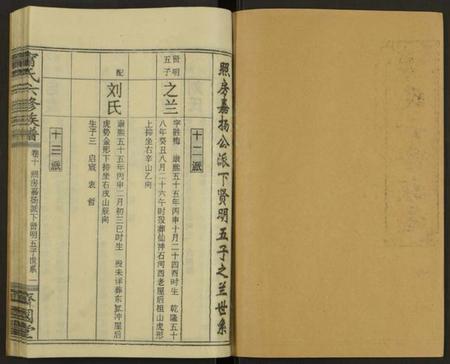 照房嘉扬公派下贤明五子之兰世系
十二派
贤明五子
之兰
字胜梅 康熙五十五年丙申十月二十四酉时生 乾隆五十
八年癸丑八月二十六午时殁葬仙神石河西老屋后祖山虎形
上排坐右辛山乙向
配
刘氏
康熙五十五年丙申二月初三巳时生 殁未详葬东瓜冲屋后
虎势金形下排坐右戌山辰向
生子三 启宸 衷 哲
十三派
甯氏六修族谱
卷十 照房嘉扬派下贤明五子世系 一